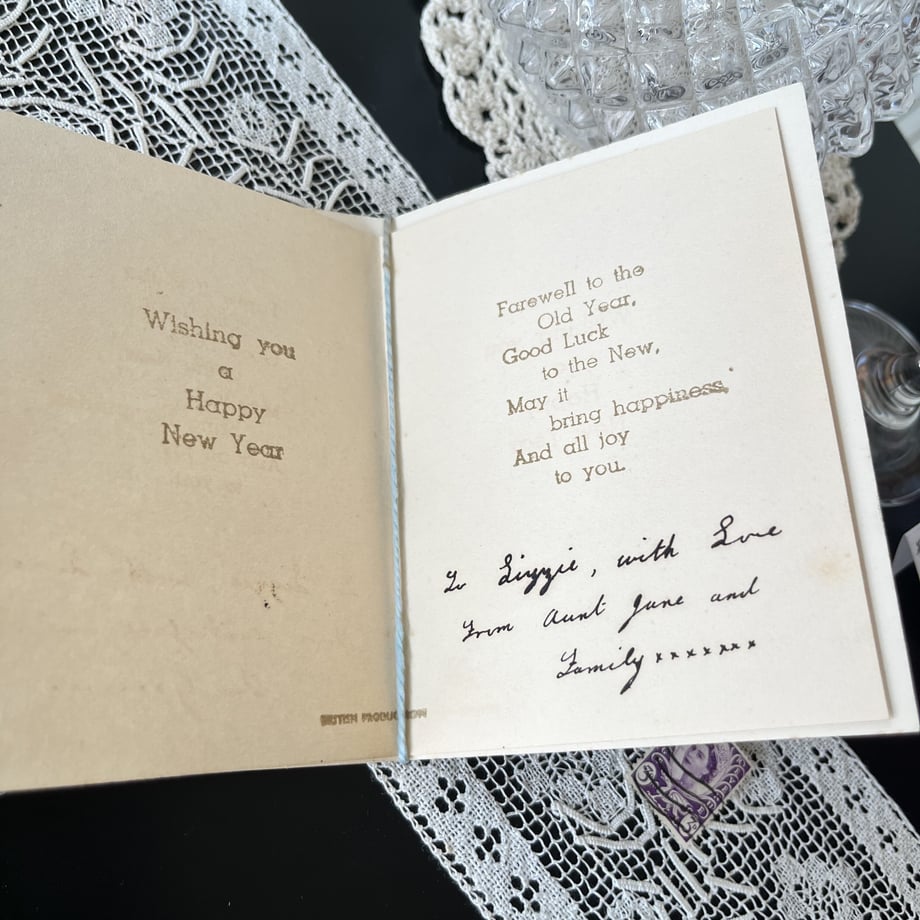 Wishing you
a
Happy
New Year
BRITISH PRODUCTION
Farewell to the
Old Year,
Good Luck
to the New,
May it
bring happiness,
And all joy
to you.
To Lizzie, with Love
From Aunt June and
Family xxxxxxx